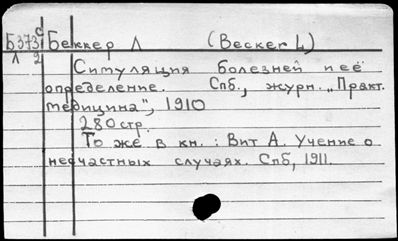 Б373 с Беккер Л (Becker L)
Л 2
Ситуляция болезней и её
определение. Спб., журн. „Практ.
медицина", 1910
280 стр.
То же в кн.: Вит А. Учение о
несчастных случаях. Спб, 1911.